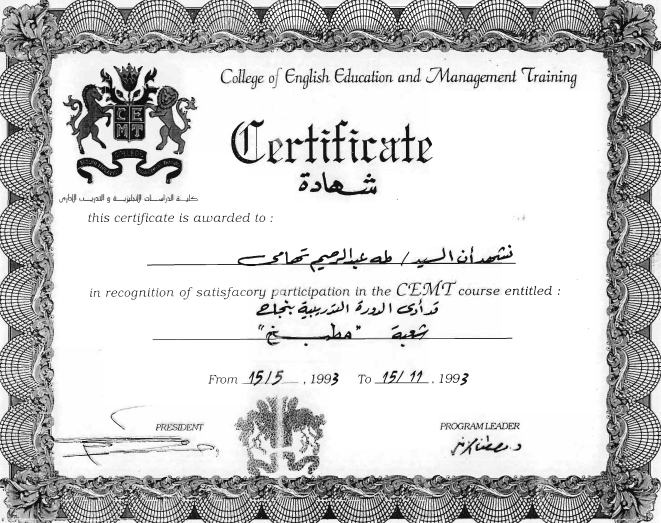 College of English Education and Management Training
C E
M T
Certificate
شهادة
كلية الدراسات الإنجليزية و التدريب الإدارى
this certificate is awarded to :
نشهد أن السيد / طه عبدالرحيم تهامى
in recognition of satisfacory participation in the CEMT course entitled :
قد أدى الدورة التدريبية بنجاح
شعبة "مطبخ"
From 15/5 , 1993 To 15/11 , 1993
PRESIDENT
PROGRAM LEADER